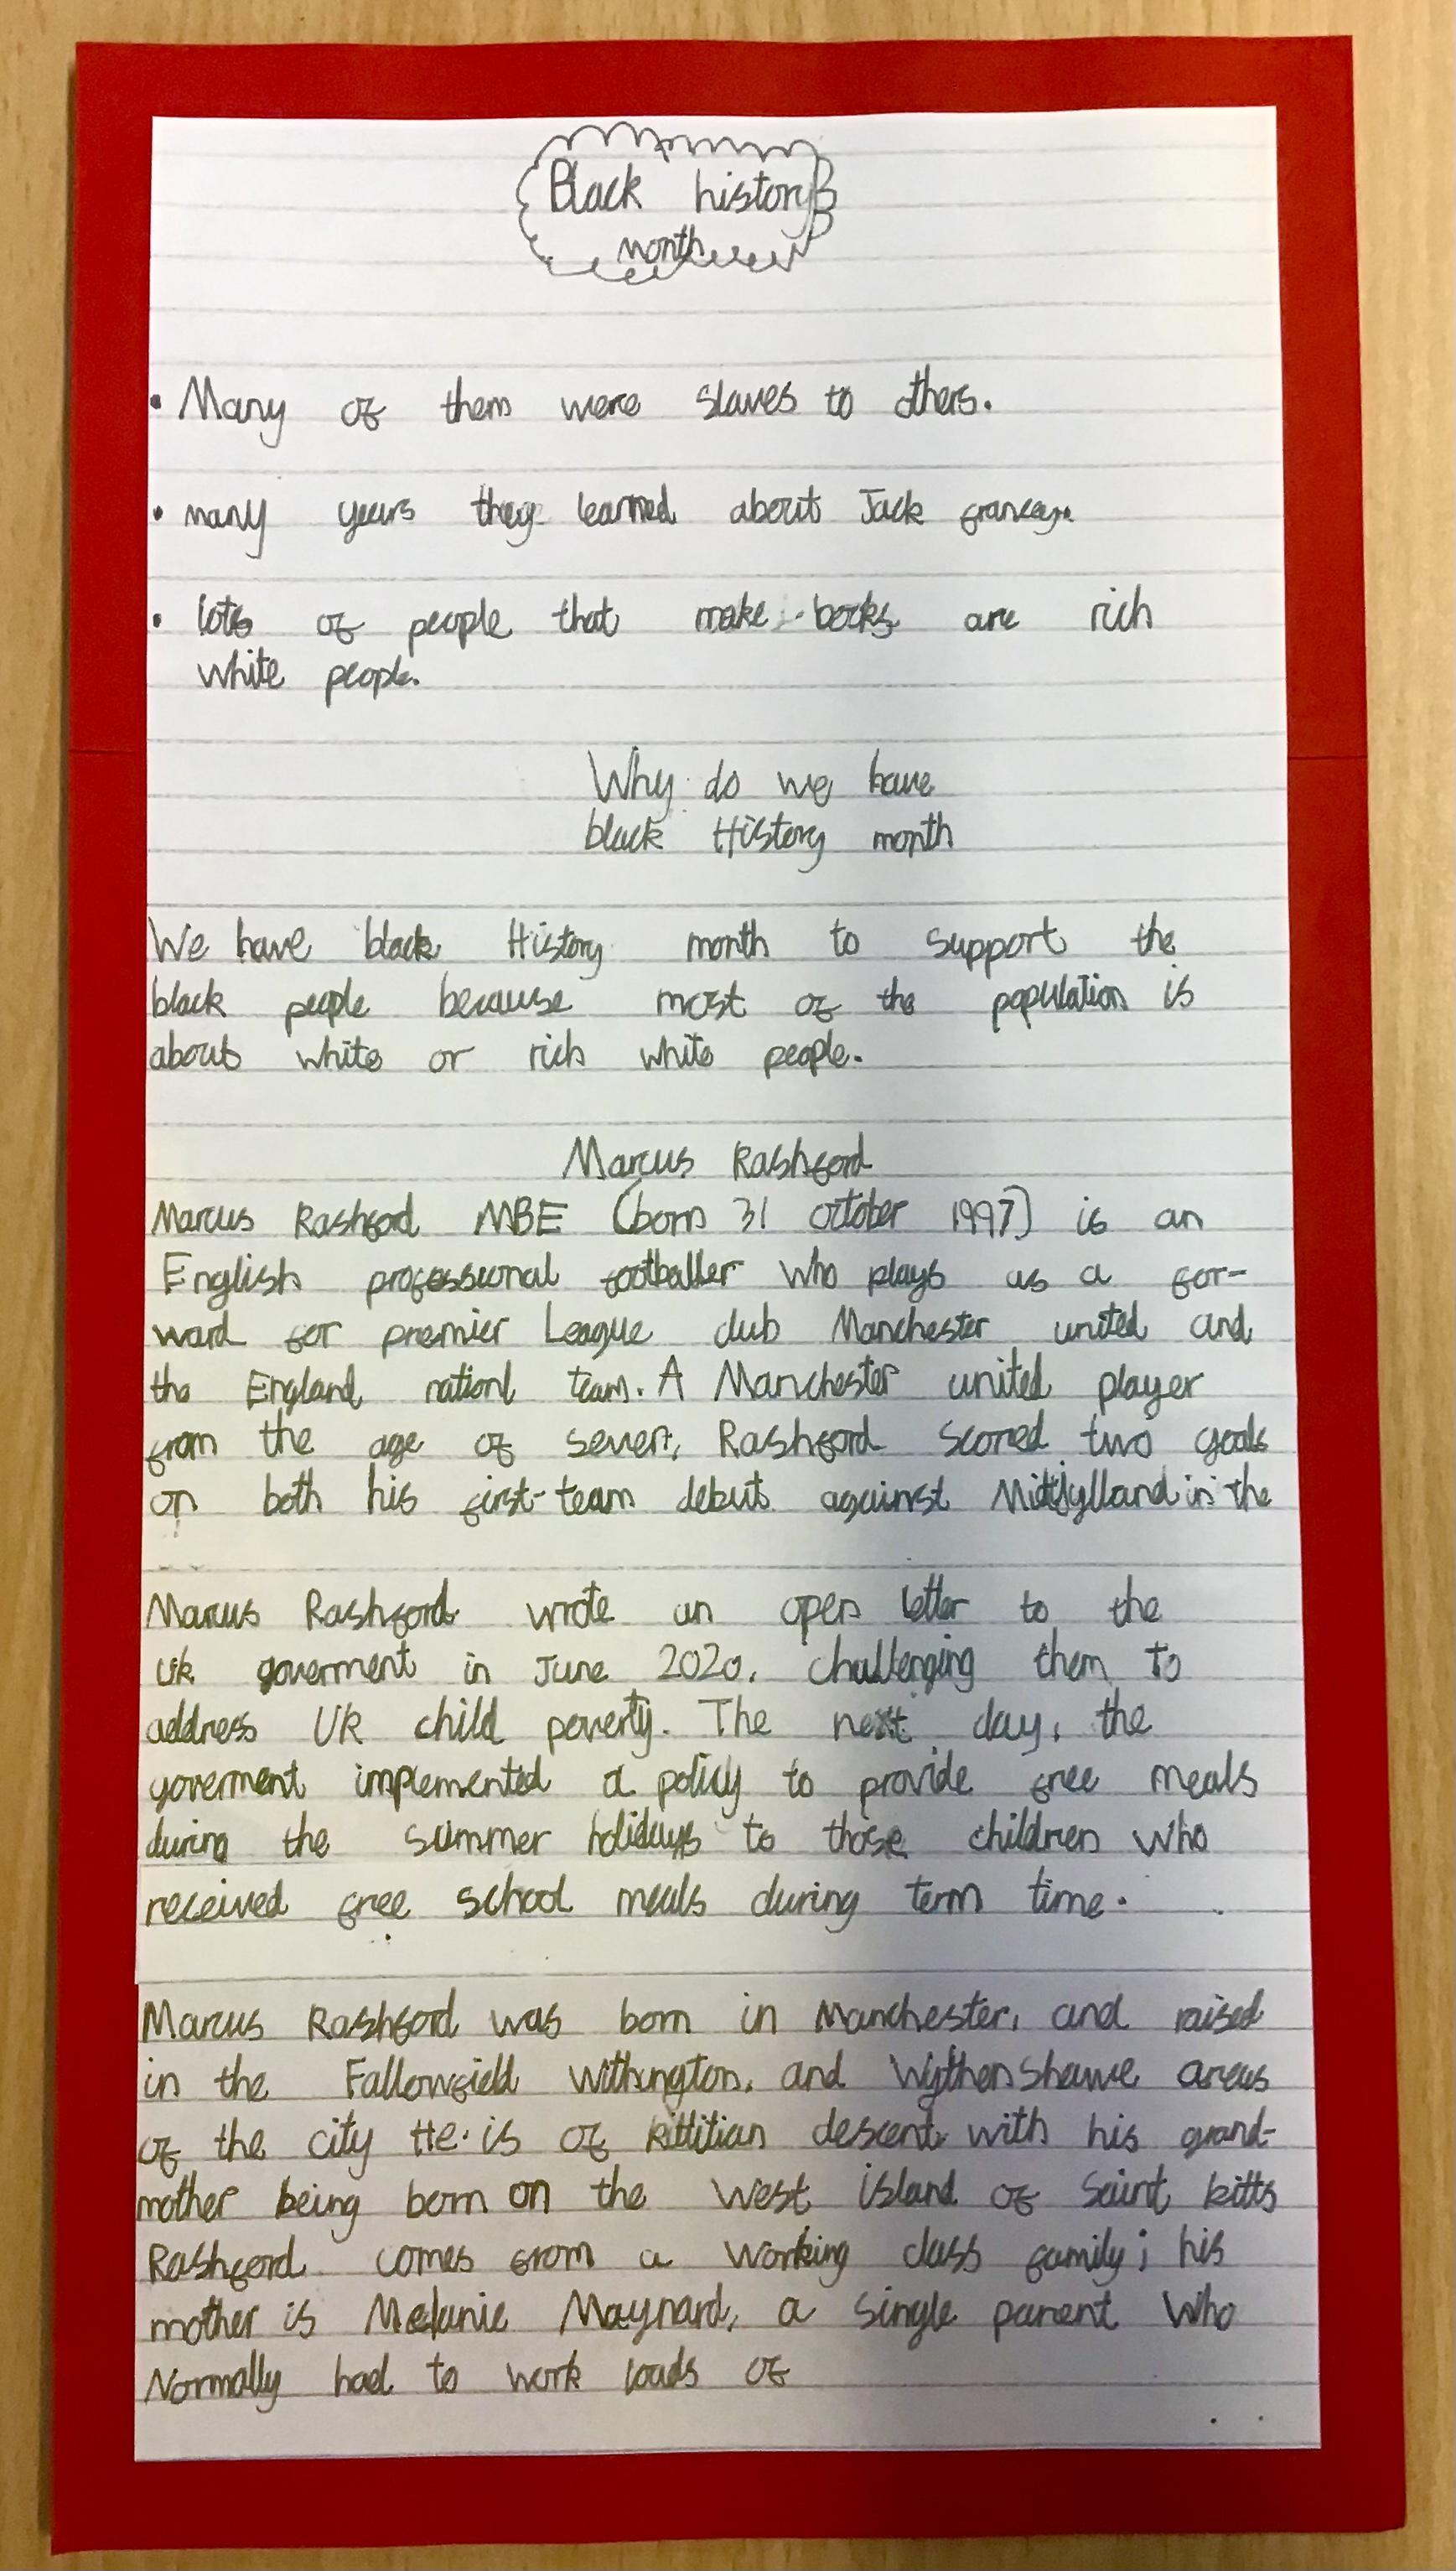 Black history
month
• Many of them were slaves to others.
• many years they learned about Jack
• lots of people that make books are rich
white people.
Why do we have
black History month
We have black History month to support the
black people because most of the population is
about white or rich white people.
Marcus Rashford
Marcus Rashford MBE (born 31 october 1997) is an
English professional footballer who plays as a for-
ward for premier League club Manchester united and
the England nationl team. A Manchester united player
from the age of seven, Rashford scored two goals
on both his first-team debut against Midtjylland in the
Marcus Rashford wrote an open letter to the
Uk goverment in June 2020, challenging them to
address Uk child poverty. The next day, the
goverment implemented a policy to provide free meals
during the summer holidays to those children who
received free school meals during term time.
Marcus Rashford was born in Manchester, and raised
in the Fallowfield Withington, and Wythenshawe areas
of the city He is of kittitian descent with his grand-
mother being born on the West island of Saint kitts
Rashford comes from a working class family; his
mother is Melanie Maynard, a single parent who
Normally had to work loads of